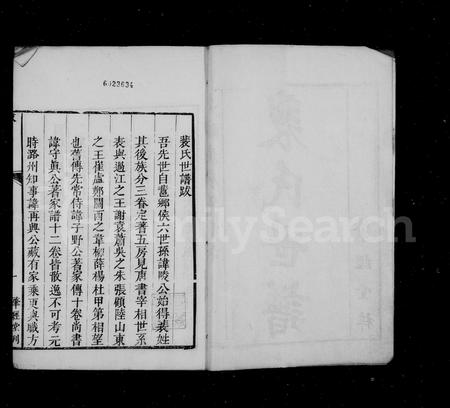 6023634
裴氏世譜跋
吾先世自䣙鄉侯六世孫諱陵公始得裴姓
其後族分三眷定著五房見唐書宰相世系
表與過江之王謝袁蕭吳之朱張顧陸山東
之王崔盧鄭關西之韋柳薛楊杜甲第相望
也舊傳先常侍諱子野公著家傳十卷尚書
諱守眞公著家譜十二卷皆散逸不可考元
時潞州知事諱再興公藏有家乘更與職方
一
華經堂刻
FamilySearch